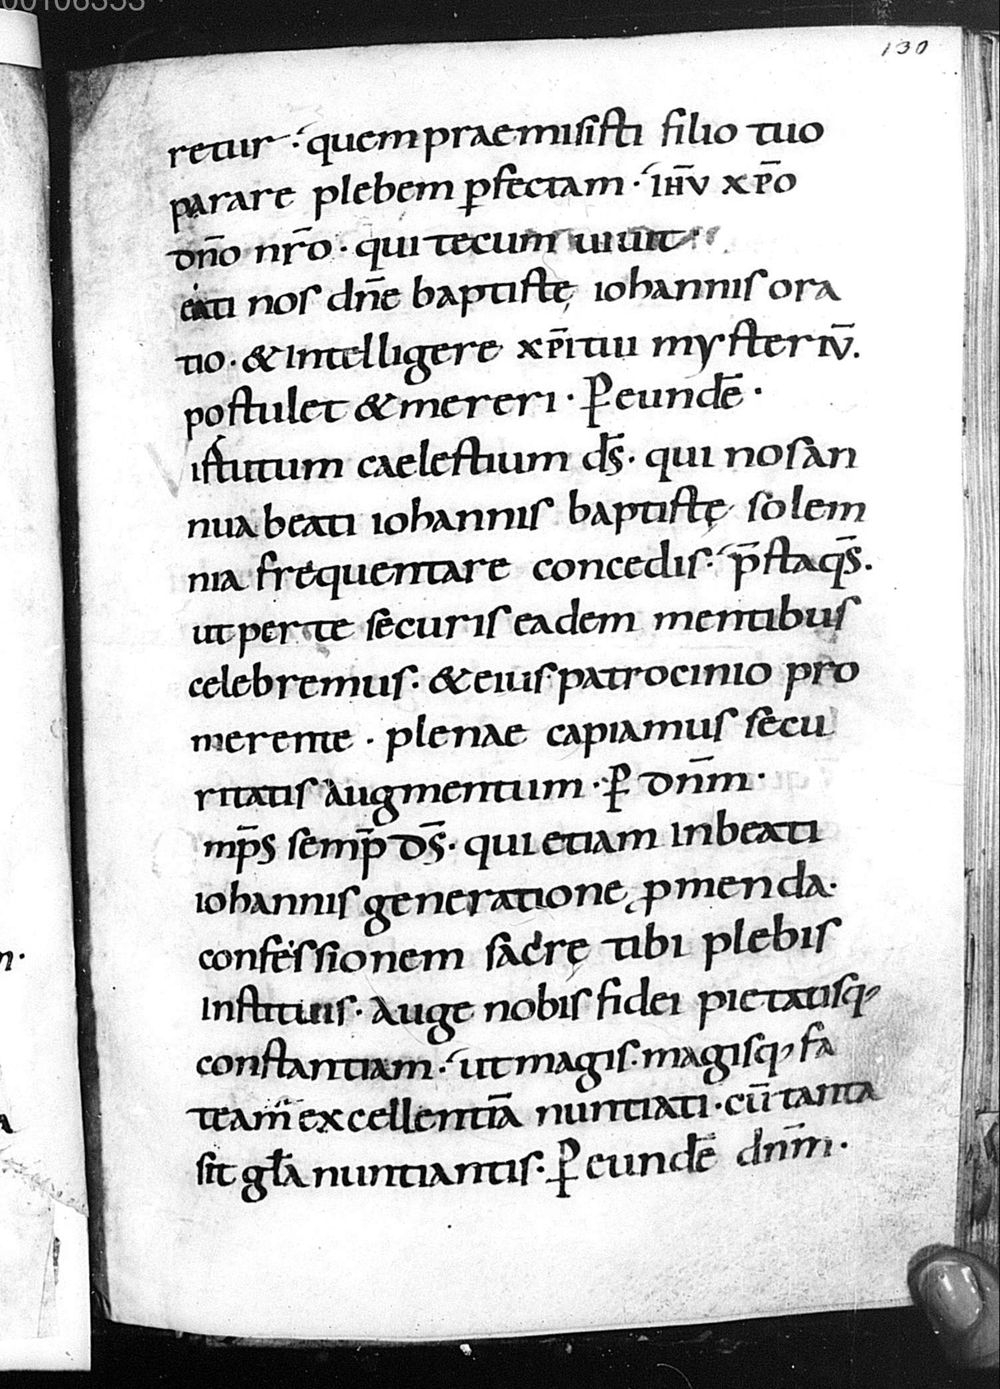 00106353
130
retur · quem praemisisti filio tuo
parare plebem p̄fectam · ih̄u xp̄o
dn̄o nr̄o · qui tecum uiuit
eati nos dn̄e baptistę iohannis ora
tio · & intelligere xp̄i tui mysteriū.
postulet & mereri · P̄ eundē ·
irtutum caelestium ds̄ · qui nos an
nua beati iohannis baptistę solem
nia frequentare concedis · p̄sta qs̄.
ut per te securis eadem mentibus
celebremus · & eius patrocinio pro
merente · plenae capiamus secu
ritatis augmentum · P̄ dn̄m ·
mp̄s semp̄ ds̄ · qui etiam in beati
iohannis generatione p̄menda ·
confessionem sacrę tibi plebis
instituis · auge nobis fidei pietatisq;
constantiam · ut magis · magisq; fa
team̄ excellentiā nuntiati · cū tanta
sit gl̄a nuntiantis · P̄ eundē dn̄m ·